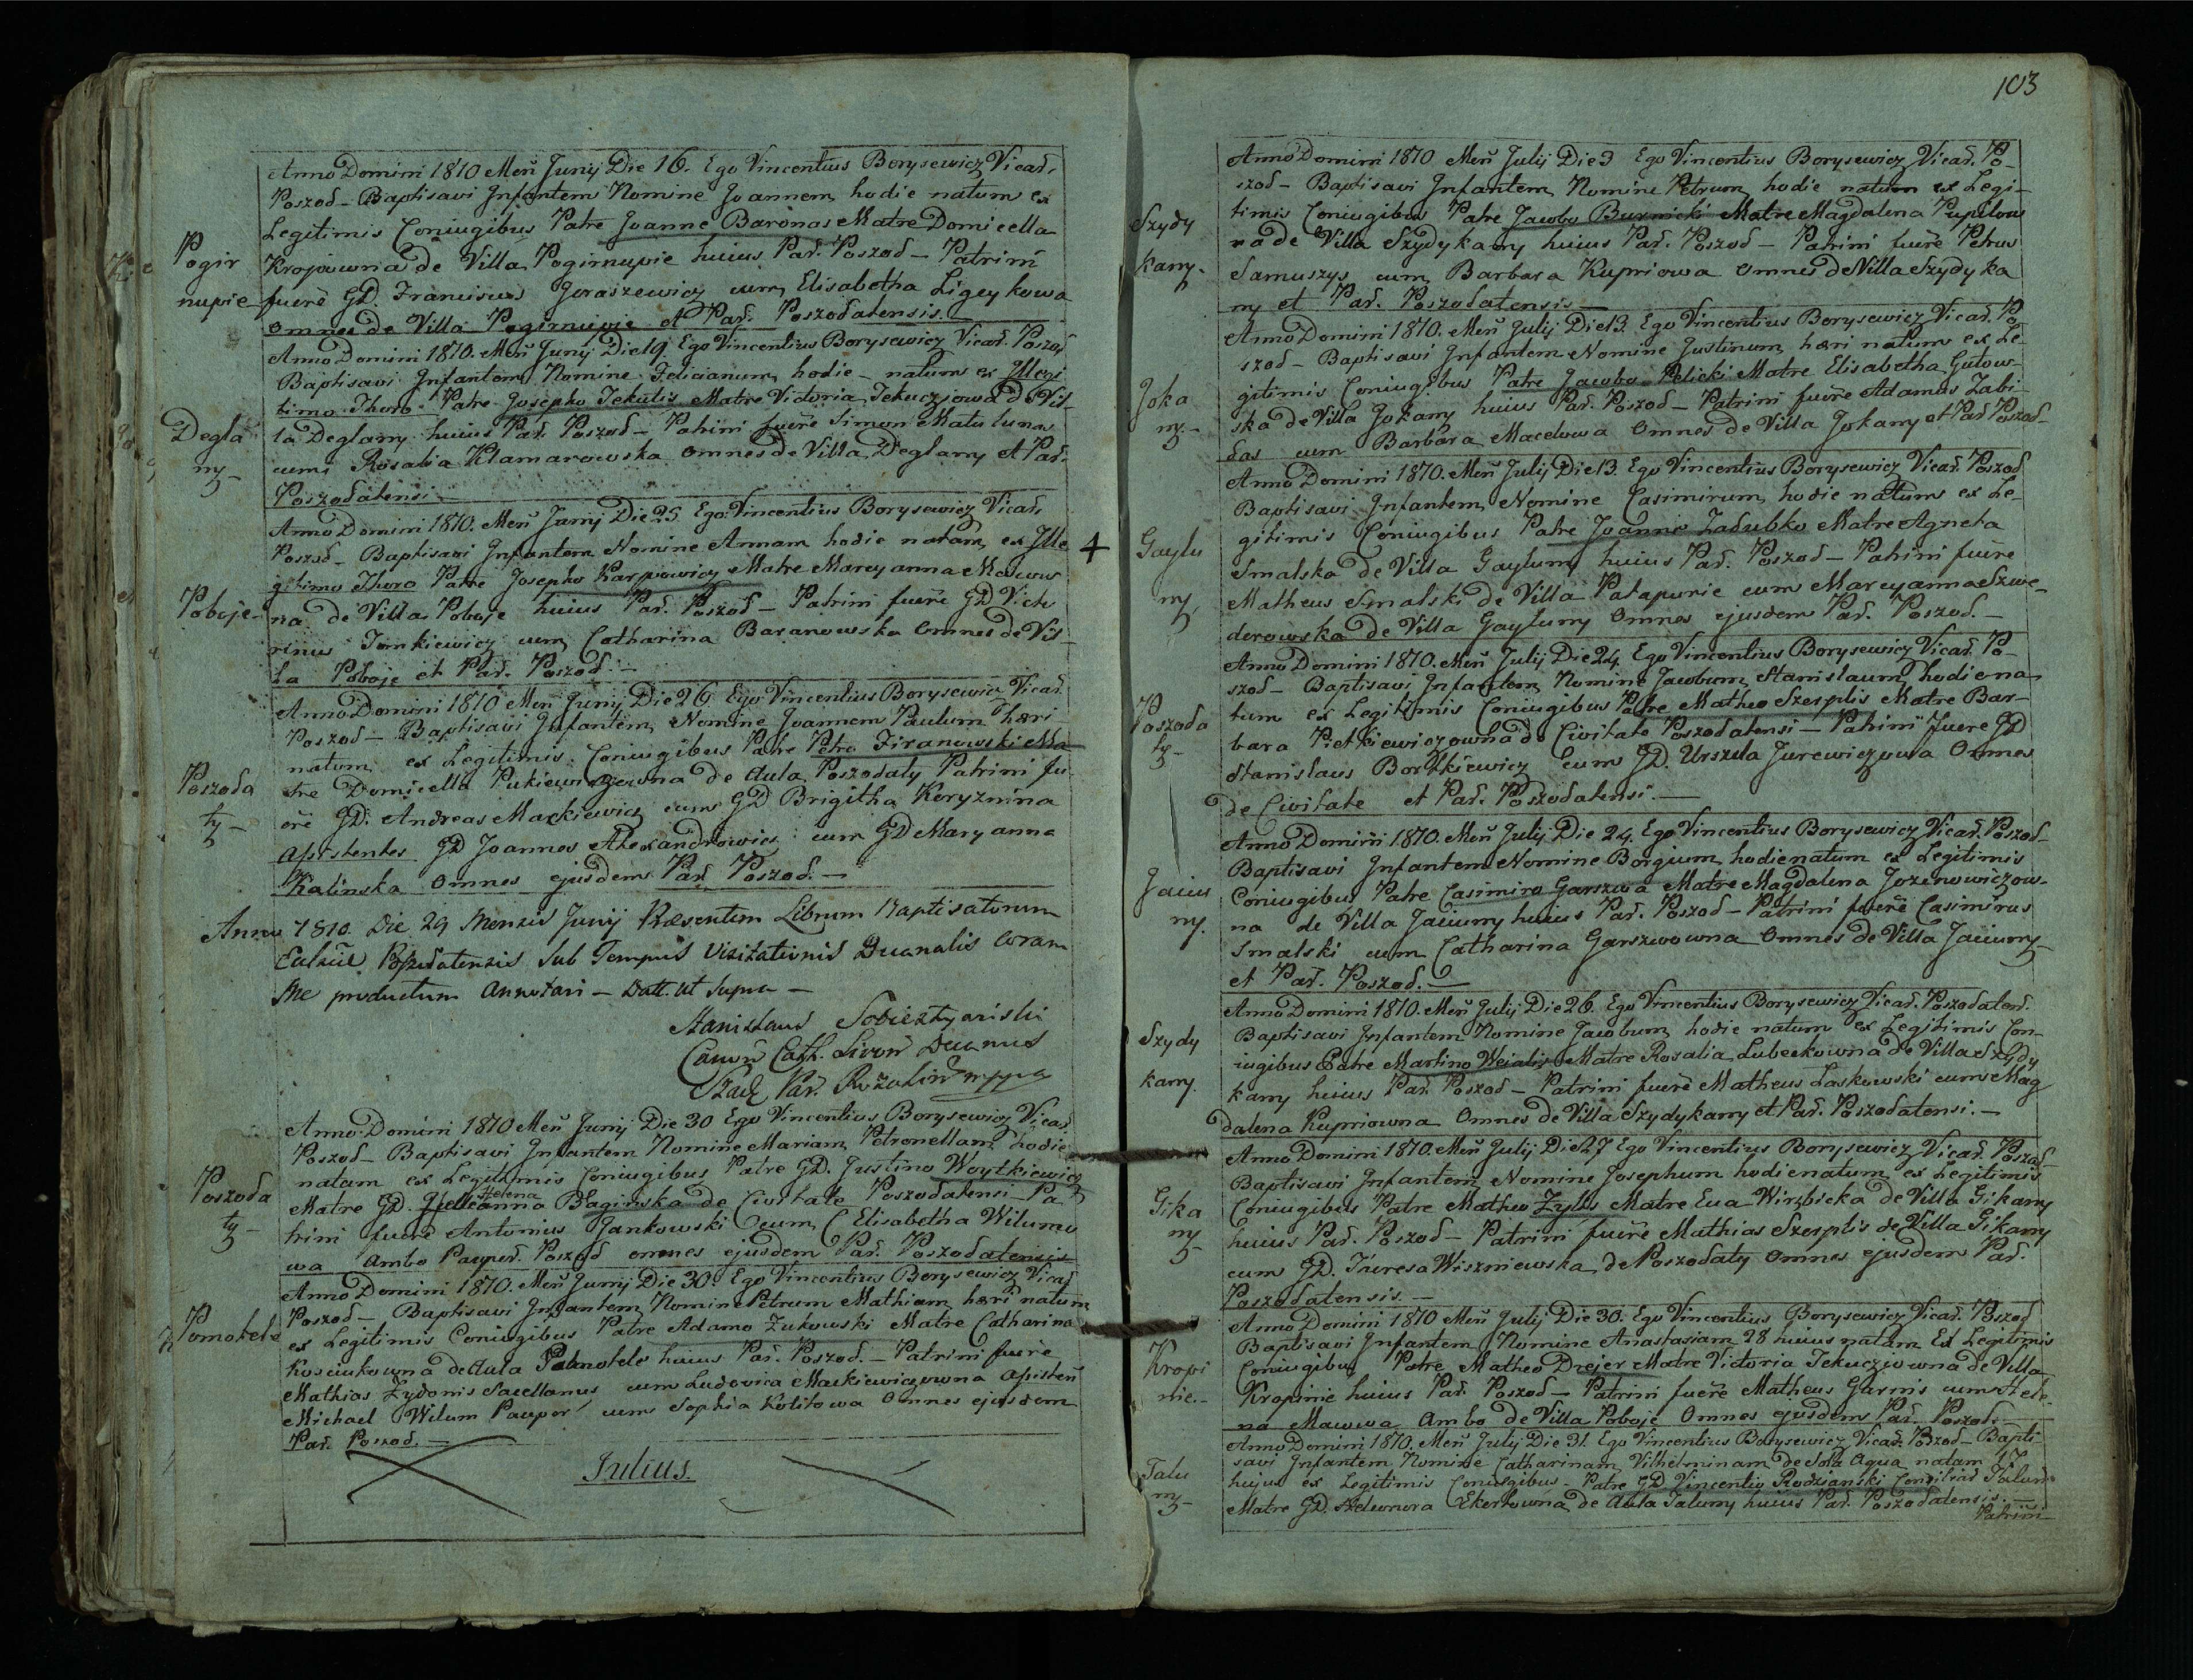 Anno Domini 1810 Meñ Junij Die 16. Ego Vincentius Borysewicz Vicar.
Poszod - Baptisavi Infantem Nomine Joannem hodie natum ex
Legitimis Coniugibus Patre Joanne Baronas Matre Domicella
Pogir
nupie
Kropiowna de Villa Pogirnupie huius Par. Poszod - Patrini
fuere GD. Franciscus Geraszewicz cum Elisabetha Ligeykowa
omnes de Villa Pogirnupie et Par. Poszodatensis.
Anno Domini 1810. Meñ Junij Die 19. Ego Vincentius Borysewicz Vicar. Poszod
Baptisavi Infantem Nomine Felicianum hodie - natum ex Illegi
timo Thoro Patre Josepho Tekutis Matre Victoria Tekuciowa de Vil-
Degla
ny -
la Deglany huius Par. Poszod - Patrini fuere Simon Matuluna
cum Rosalia Klamarowska omnes de Villa Deglany et Par.
Poszodatensi -
Anno Domini 1810. Meñ Junij Die 25 Ego Vincentius Borysewicz Vicar.
Poszod - Baptisavi Infantem Nomine Annam hodie natam ex Ille
gitimo Thoro Patre Josepho Karpowicz Matre Maryanna
Poboje
na de Villa Poboje huius Par. Poszod - Patrini fuere GD Victo
rinus Tomkiewicz cum Catharina Baranowska Omnes de Vil-
la Poboje et Par. Poszod -
Anno Domini 1810 Meñ Junij Die 26 Ego Vincentius Borysewicz Vicar.
Poszod - Baptisavi Infantem Nomine Joannem Paulum hæri
natum ex Legitimis Coniugibus Patre Petro Firanowski Ma
Poszoda
ty -
tre Domicella de Aula Poszodaty Patrini fu-
ere GD. Andreas Mackiewicz cum GD Brigitha Koryznina
Assistentes GD Joannes Alexandrowicz cum GD Maryanna
Kalinska Omnes ejusdem Par. Poszod. -
Anno 1810. Die 29 Mensis Junij Præsentem Librum Baptisatorum
Poszodatensis Sub Tempus Visitationis Decanalis coram
Me productum Annotavi - Datt. ut Supra -
Stanislaus
Canon Cath. Livon Decanus
Par.
Anno Domini 1810 Meñ Junij Die 30 Ego Vincentius Borysewicz Vicar.
Poszod - Baptisavi Infantem Nomine Mariam Petronellam hodie
natam ex Legitimis Coniugibus Patre GD. Justino Woytkiewicz
Poszoda
ty -
Helena
Matre GD. Baginska de Civitate Poszodatensi - Pa
trini fuere Antonius Jankowski cum Elisabetha Wilumo
wa Ambo Pauper. Poszod omnes ejusdem Par. Poszodatensis
Anno Domini 1810. Meñ Junij Die 30. Ego Vincentius Borysewicz Vicar
Pomotele
Poszod - Baptisavi Infantem Nomine Petrum Mathiam hæri natum
ex Legitimis Coniugibus Patre Adamo Zukowski Matre Catharina
Kosciukowna de Aula Pomotele huius Par. Poszod. - Patrini fuere
Mathias Zydonis Sacellanus cum Ludovica Mackiewiczowna Assisten
Michael Wilum Pauper cum Sophia Kolitowa Omnes ejusdem
Par. Poszod. -
Julius.
103
Anno Domini 1810 Meñ Julij Die 3 Ego Vincentius Borysewicz Vicar. Po-
szod - Baptisavi Infantem Nomine Petrum hodie natum ex Legi-
Szydy
kany -
timis Coniugibus Patre Jacobo Burnicki Matre Magdalena Pupilow
na de Villa Szydykany huius Par. Poszod - Patrini fuere Petrus
Samuszys cum Barbara Kupriowa omnes de Villa Szydyka
ny et Par. Poszodatensis -
Anno Domini 1810. Meñ Julij Die 13. Ego Vincentius Borysewicz Vicar. Po
szod - Baptisavi Infantem Nomine Justinum hæri natum ex Le-
Joka
ny -
gitimis Coniugibus Patre Jacobo Pelicki Matre Elisabetha Gutow-
ska de Villa Jokany huius Par. Poszod - Patrini fuere Adamus Zabi
las cum Barbara Macelowa Omnes de Villa Jokany et Par Poszod-
Anno Domini 1810. Meñ Julij Die 13. Ego Vincentius Borysewicz Vicar. Poszod
Baptisavi Infantem Nomine Casimirum hodie natum ex Le-
Gaylu
ny
gitimis Coniugibus Patre Joanne Zadubko Matre Agneta
Smalska de Villa Gayluny huius Par. Poszod - Patrini fuere
Matheus Smalski de Villa Patapunie cum Maryanna Szwe-
derowska de Villa Gayluny Omnes ejusdem Par. Poszod. -
Anno Domini 1810. Meñ Julij Die 24. Ego Vincentius Borysewicz Vicar. Po-
szod - Baptisavi Infantem Nomine Jacobum Stanislaum hodie na-
Poszoda
ty -
tum ex Legitimis Coniugibus Patre Matheo Szerplis Matre Bar-
bara Pietkiewiczowna de Civitate Poszodatensi - Patrini fuere GD
Stanislaus Bortkiewicz cum GD. Urszula Jurewiczowa Omnes
de Civitate et Par. Poszodatensi. -
Anno Domini 1810. Meñ Julij Die 24. Ego Vincentius Borysewicz Vicar. Poszod-
Baptisavi Infantem Nomine Borgium hodie natum ex Legitimis
Jaciu
ny.
Coniugibus Patre Casimiro Garszwa Matre Magdalena Jozenowiczow-
na de Villa Jaciuny huius Par. Poszod - Patrini fuere Casimirus
Smalski cum Catharina Garszwowna Omnes de Villa Jaciuny
et Par. Poszod. -
Anno Domini 1810. Meñ Julij Die 26. Ego Vincentius Borysewicz Vicar. Poszodaten.
Szydy
kany.
Baptisavi Infantem Nomine Jacobum hodie natum ex Legitimis Con-
iugibus Patre Martino Weialis Matre Rosalia Lubeckowna de Villa Szydy
kany huius Par. Poszod - Patrini fuere Matheus Laskowski cum Mag
dalena Kupriowna Omnes de Villa Szydykany et Par. Poszodatensi. -
Anno Domini 1810. Meñ Julij Die 27 Ego Vincentius Borysewicz Vicar. Poszod-
Baptisavi Infantem Nomine Josephum hodie natum ex Legitimis
Gika
ny -
Coniugibus Patre Matheo Zylis Matre Eua Wirzbicka de Villa Gikany
huius Par. Poszod - Patrini fuere Mathias Szerplis de Villa Gikany
cum GD. Theresa Wiszniewska de Poszodaty Omnes ejusdem Par.
Poszodatensis. -
Anno Domini 1810 Meñ Julij Die 30. Ego Vincentius Borysewicz Vicar. Poszod
Kropi
nie -
Baptisavi Infantem Nomine Anastasiam 28 huius natam Ex Legitimis
Coniugibus Patre Matheo Drejer Matre Victoria Tekuczowna de Villa
Kropinie huius Par. Poszod - Patrini fuere Matheus Garnis cum Hele-
na Macwa Ambo de Villa Poboje Omnes ejusdem Par. Poszod. -
Anno Domini 1810. Meñ Julij Die 31. Ego Vincentius Borysewicz Vicar. Poszod - Bapti-
Talu
ny -
savi Infantem Nomine Catharinam Vilhelminam de Sola Aqua natam
hujus ex Legitimis Coniugibus. Patre GD Vincentio Rodzianski
Matre GD. Eleonora Ekertowna de Aula Taluny huius Par. Poszodatensis. -
Patrini -